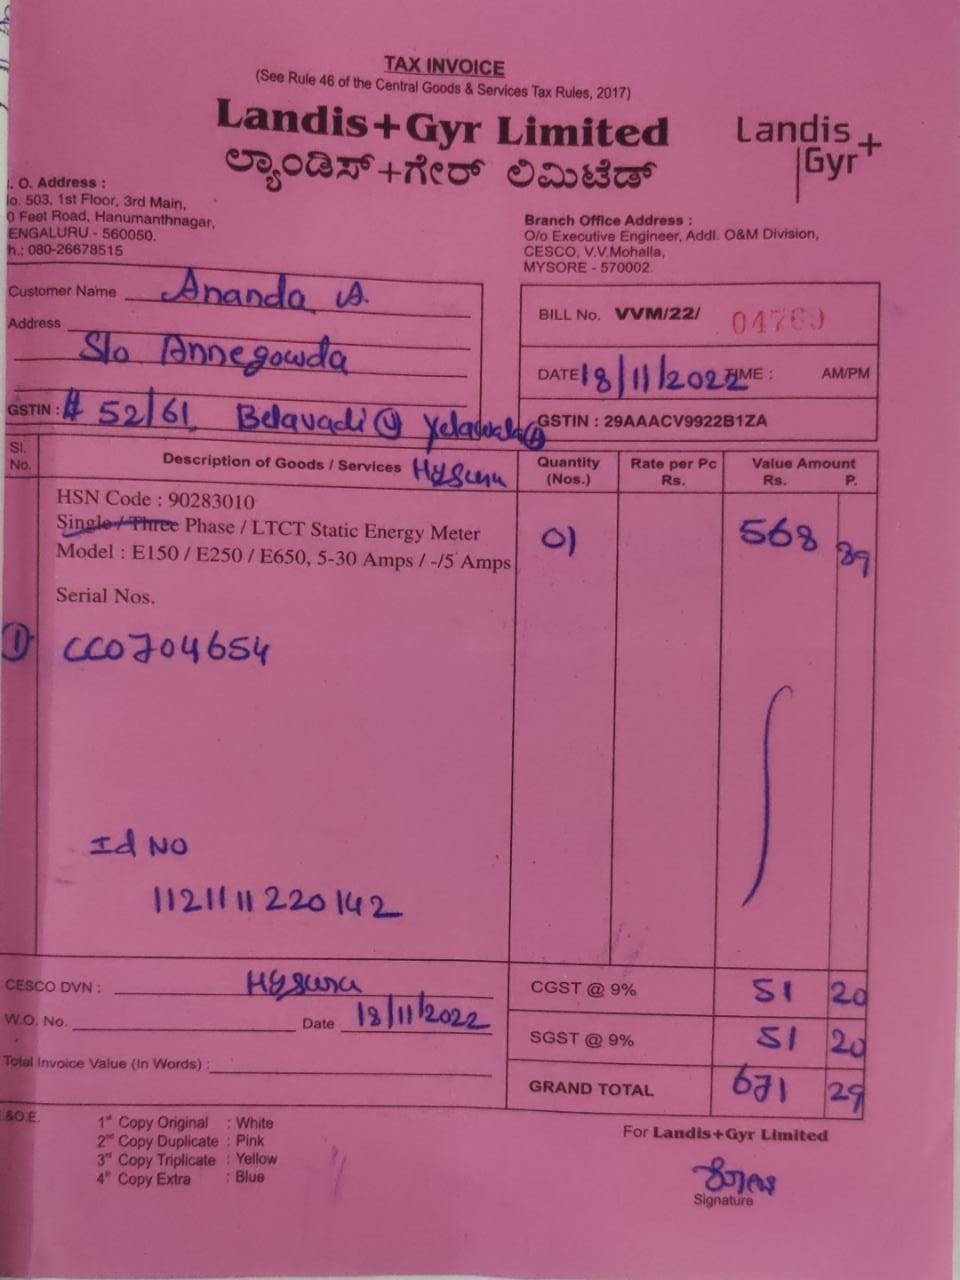 TAX INVOICE
(See Rule 46 of the Central Goods & Services Tax Rules, 2017)
Landis+Gyr Limited
ಲ್ಯಾಂಡಿಸ್+ಗೇರ್ ಲಿಮಿಟೆಡ್
Landis+
Gyr
. O. Address :
o. 503, 1st Floor, 3rd Main,
0 Feet Road, Hanumanthnagar,
ENGALURU - 560050.
h.: 080-26678515
Branch Office Address :
O/o Executive Engineer, Addl. O&M Division,
CESCO, V.V.Mohalla,
MYSORE - 570002.
Customer Name Ananda A.
Address
S/o Annegowda
GSTIN : # 52/61, Belavadi Yelawala
Mysuru
BILL No. VVM/22/
DATE 18/11/2022 TIME : AM/PM
GSTIN : 29AAACV9922B1ZA
Sl. No. Description of Goods / Services Quantity (Nos.) Rate per Pc Rs. Value Amount Rs. P.
HSN Code : 90283010
Single / Three Phase / LTCT Static Energy Meter 01 568 89
Model : E150 / E250 / E650, 5-30 Amps / -/5 Amps
Serial Nos.
1 CC0704654
Id NO
1121111220142
CESCO DVN : Mysuru
W.O. No. Date 18/11/2022
Total Invoice Value (In Words) :
CGST @ 9% 51 20
SGST @ 9% 51 20
GRAND TOTAL 671 29
.&O.E.
1st Copy Original : White
2nd Copy Duplicate : Pink
3rd Copy Triplicate : Yellow
4th Copy Extra : Blue
For Landis+Gyr Limited
Signature